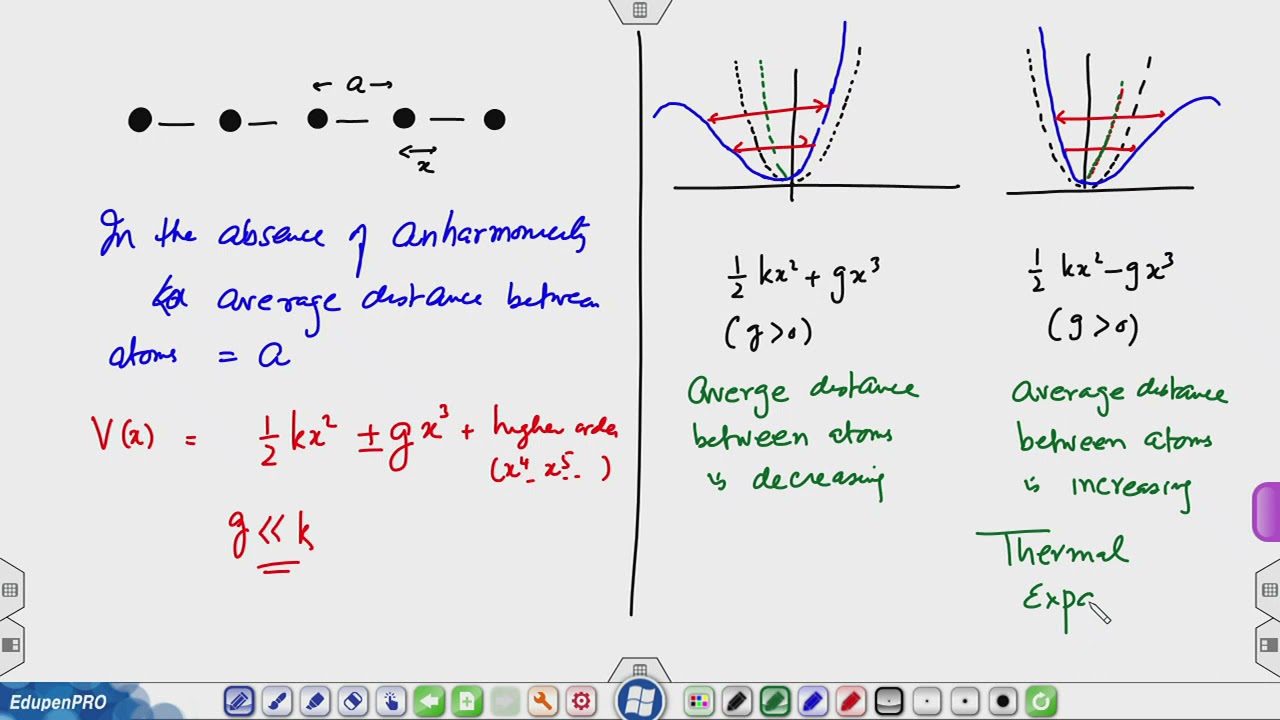 a
x
In the absence of anharmonicity
average distance between
atoms = a
V(x) = 1/2 kx² ± gx³ + higher order
(x⁴ x⁵ - - )
g << k
1/2 kx² + gx³
(g > 0)
Averge distance
between atoms
is decreasing
1/2 kx² - gx³
(g > 0)
Average distance
between atoms
is increasing
Thermal
Expa
EdupenPRO